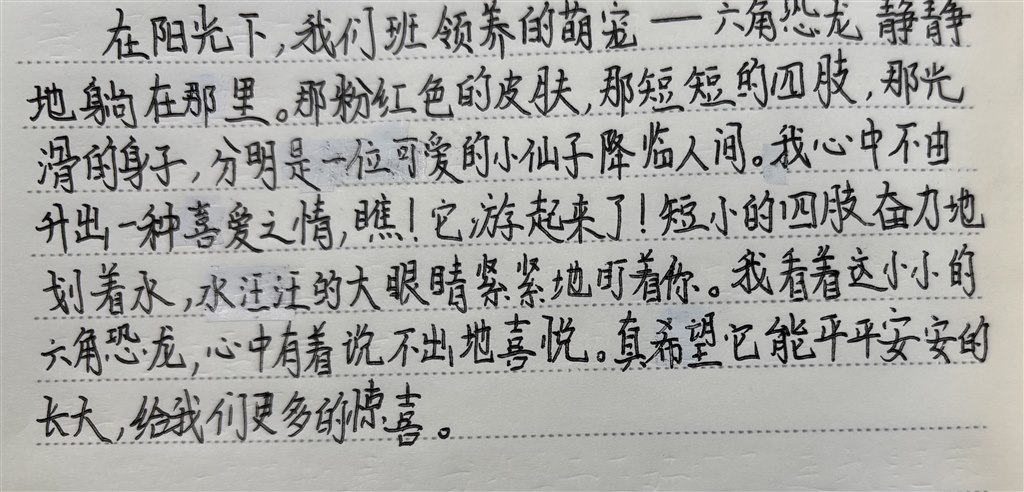 在阳光下,我们班领养的萌宠一六角恐龙静静
地躺在那里。那粉红色的皮肤,那短短的四肢,那光
滑的身子,分明是一位可爱的小仙子降临人间。我心中不由
升出一种喜爱之情,瞧!它游起来了!短小的四肢奋力地
划着水,水汪汪的大眼睛紧紧地盯着你。我看着这小小的
六角恐龙,心中有着说不出地喜悦。真希望它能平平安安的
长大,给我们更多的惊喜。